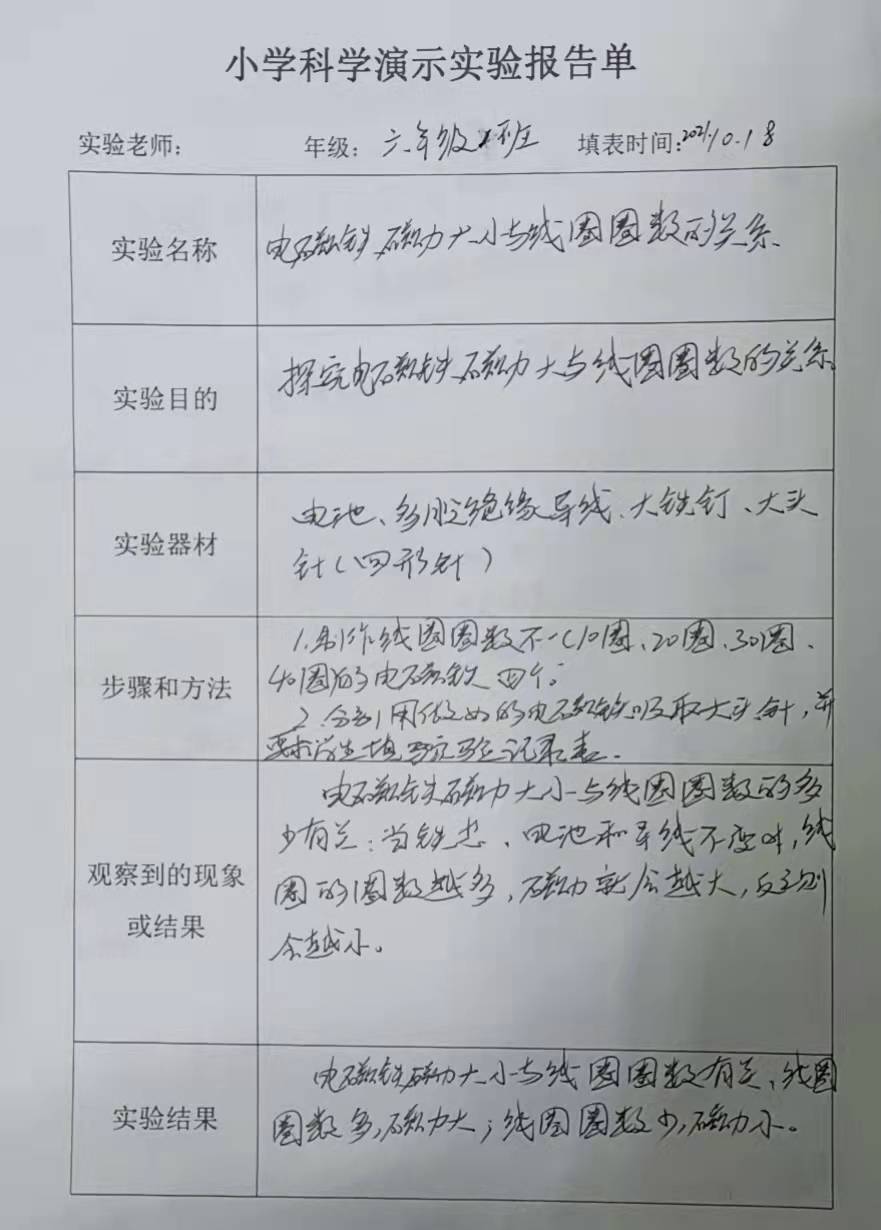 小学科学演示实验报告单
实验老师: 年级: 六年级 班 填表时间:2021.10.18
实验名称 电磁铁磁力大小与线圈圈数的关系.
实验目的 探究电磁铁磁力大与线圈圈数的关系.
实验器材
电池、多股绝缘导线、大铁钉、大头
针(回形针)
步骤和方法
1.制作线圈圈数不一(10圈、20圈、30圈、
40圈)的电磁铁四个。
2.分别用做好的电磁铁吸取大头针,并
要求学生填写实验记录表.
观察到的现象
或结果
电磁铁磁力大小与线圈圈数的多
少有关:当铁芯、电池和导线不变时,线
圈的圈数越多,磁力就会越大,反之则
会越小。
实验结果
电磁铁磁力大小与线圈圈数有关、线圈
圈数多,磁力大;线圈圈数少,磁力小。